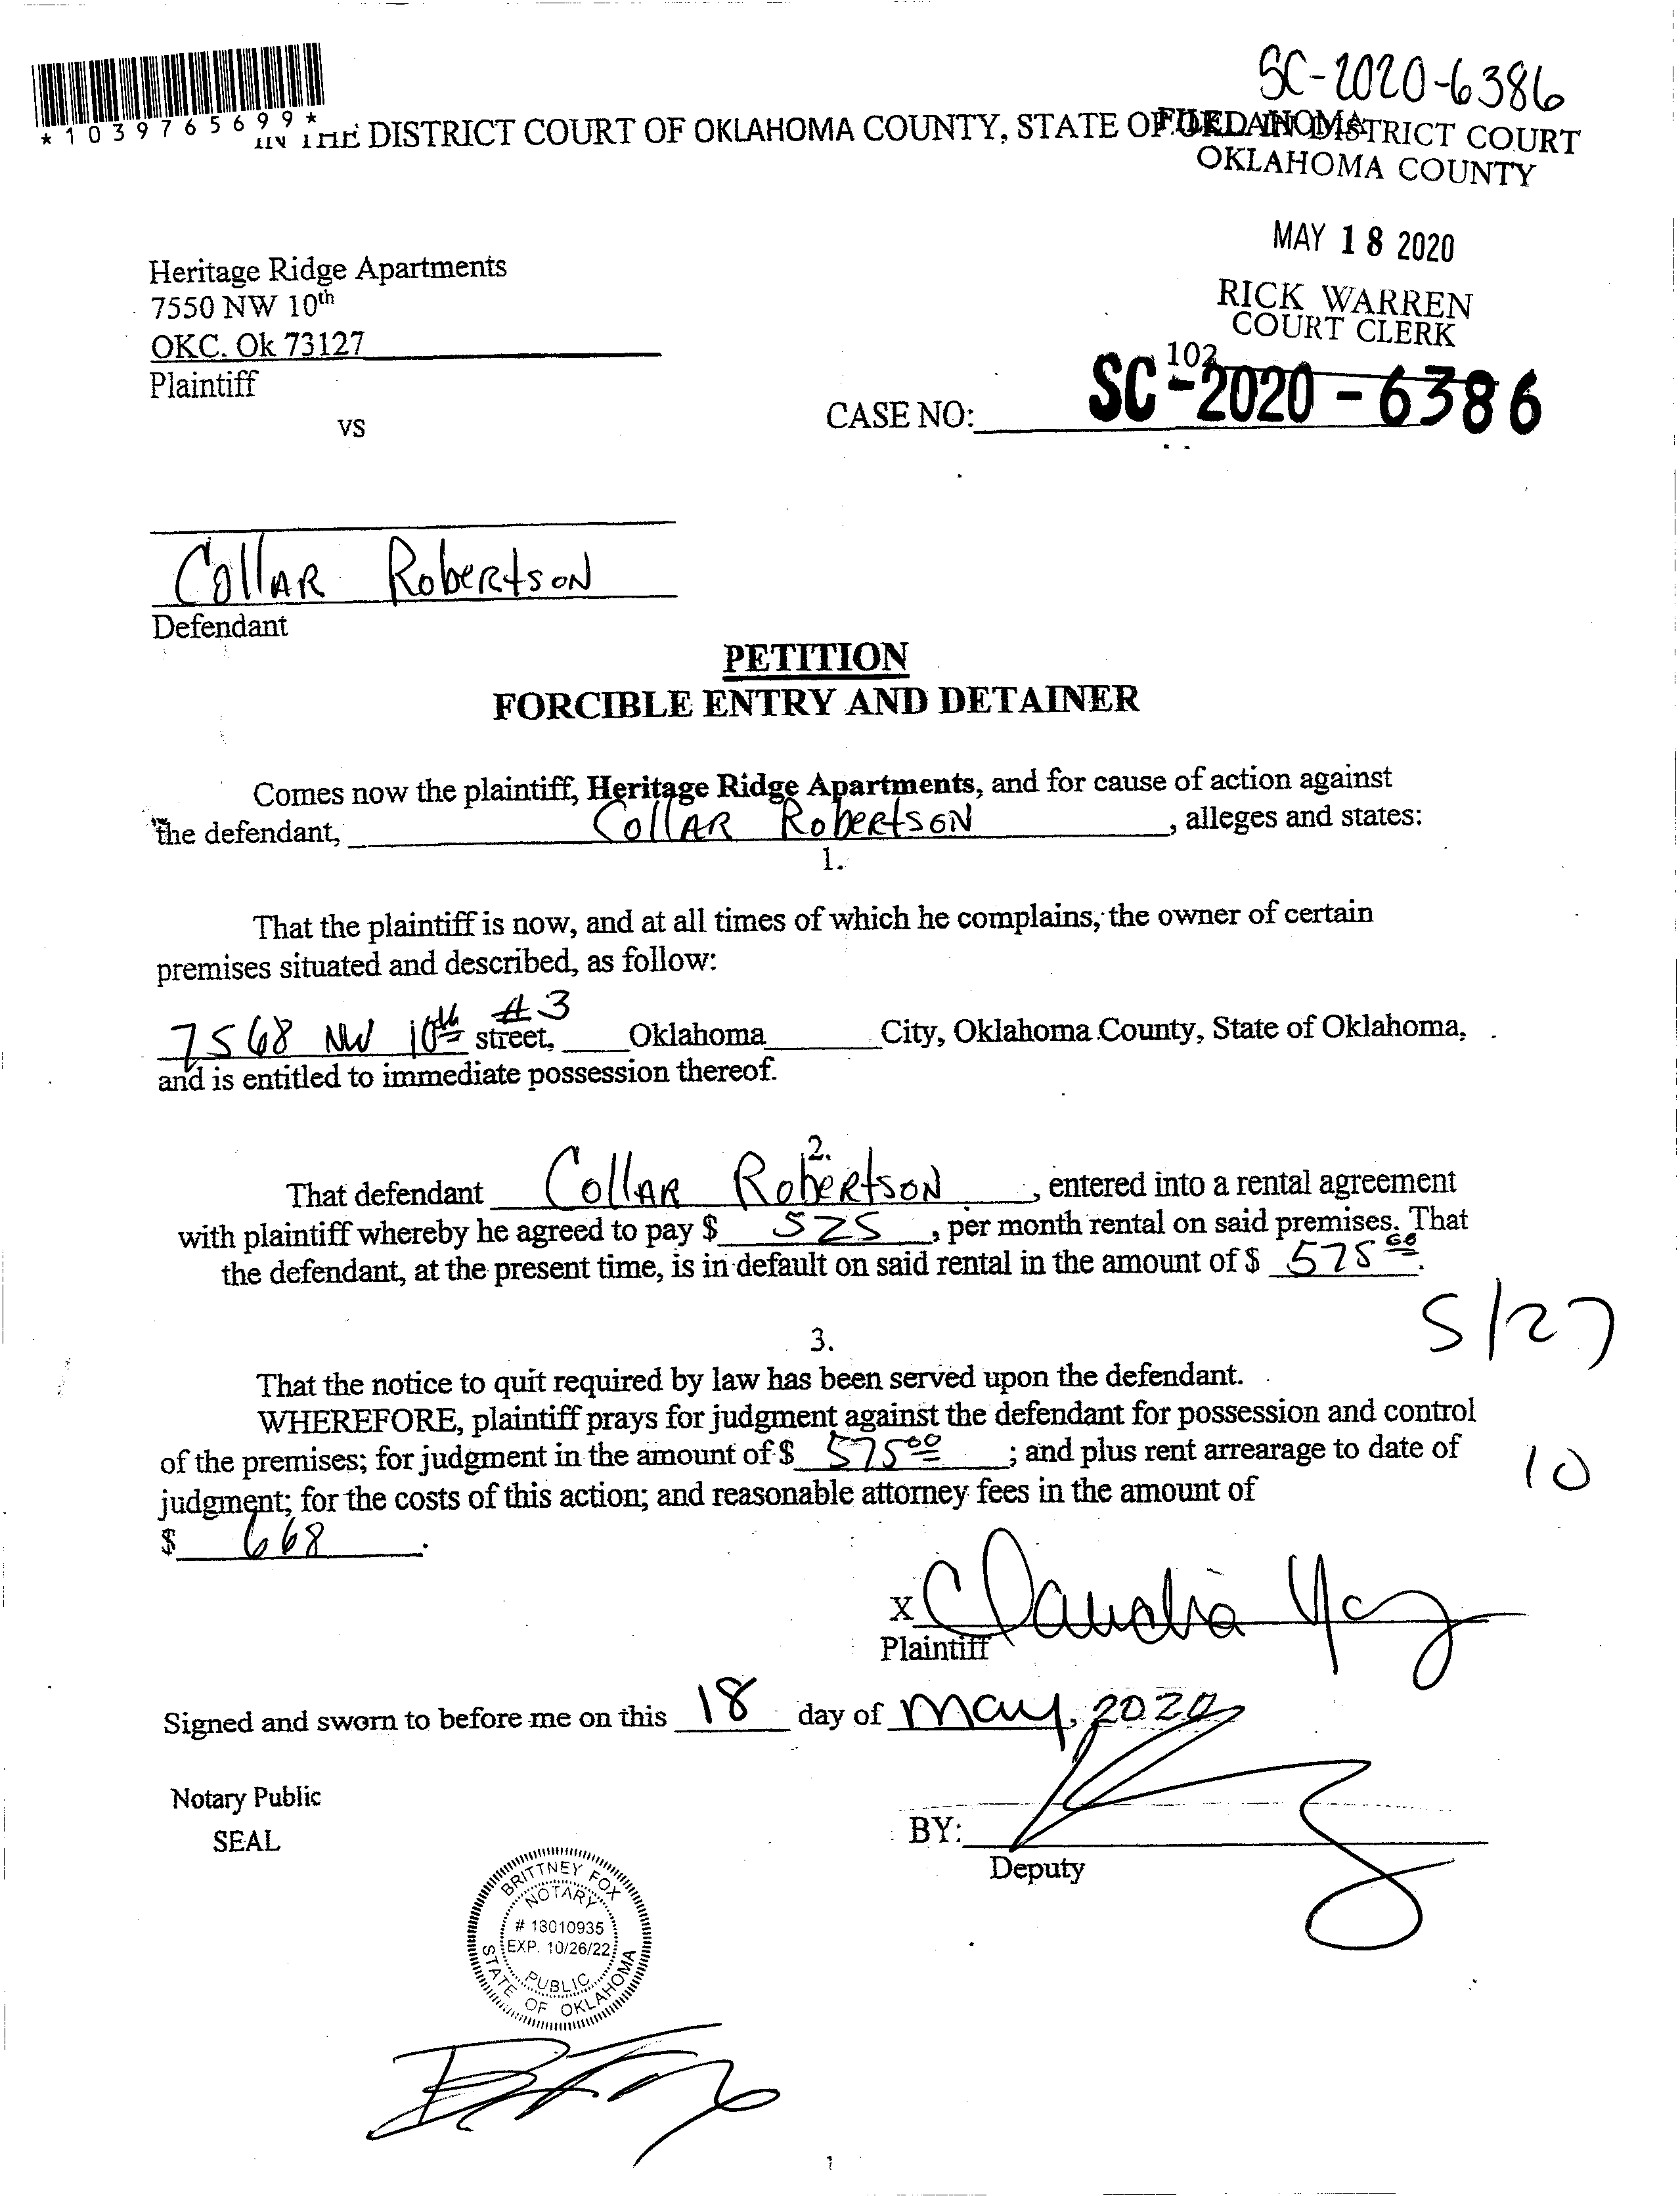 SC-2020-6386
*1039765699*
IN THE DISTRICT COURT OF OKLAHOMA COUNTY, STATE OF OKLAHOMA
FILED IN DISTRICT COURT
OKLAHOMA COUNTY
MAY 18 2020
Heritage Ridge Apartments
7550 NW 10th
RICK WARREN
COURT CLERK
OKC. Ok 73127
102
Plaintiff
SC-2020-6386
CASE NO:
VS
CollAR RobeRtsoN
Defendant
PETITION
FORCIBLE ENTRY AND DETAINER
Comes now the plaintiff, Heritage Ridge Apartments, and for cause of action against
the defendant, CollAR RobeRtsoN, alleges and states:
1.
That the plaintiff is now, and at all times of which he complains, the owner of certain
premises situated and described, as follow:
7568 NW 10th #3 street, Oklahoma City, Oklahoma County, State of Oklahoma,
and is entitled to immediate possession thereof.
2.
That defendant CollAR RobeRtsoN, entered into a rental agreement
with plaintiff whereby he agreed to pay $ 525, per month rental on said premises. That
the defendant, at the present time, is in default on said rental in the amount of $ 575 00.
5/27
3.
That the notice to quit required by law has been served upon the defendant.
WHEREFORE, plaintiff prays for judgment against the defendant for possession and control
of the premises; for judgment in the amount of $ 575 00; and plus rent arrearage to date of
10
judgment; for the costs of this action; and reasonable attorney fees in the amount of
$ 668.
X Claudia
Plaintiff
Signed and sworn to before me on this 18 day of May, 2020
Notary Public
SEAL
BY:
Deputy
BRITTNEY FOX
NOTARY
# 18010935
EXP. 10/26/22
PUBLIC
STATE OF OKLAHOMA
1